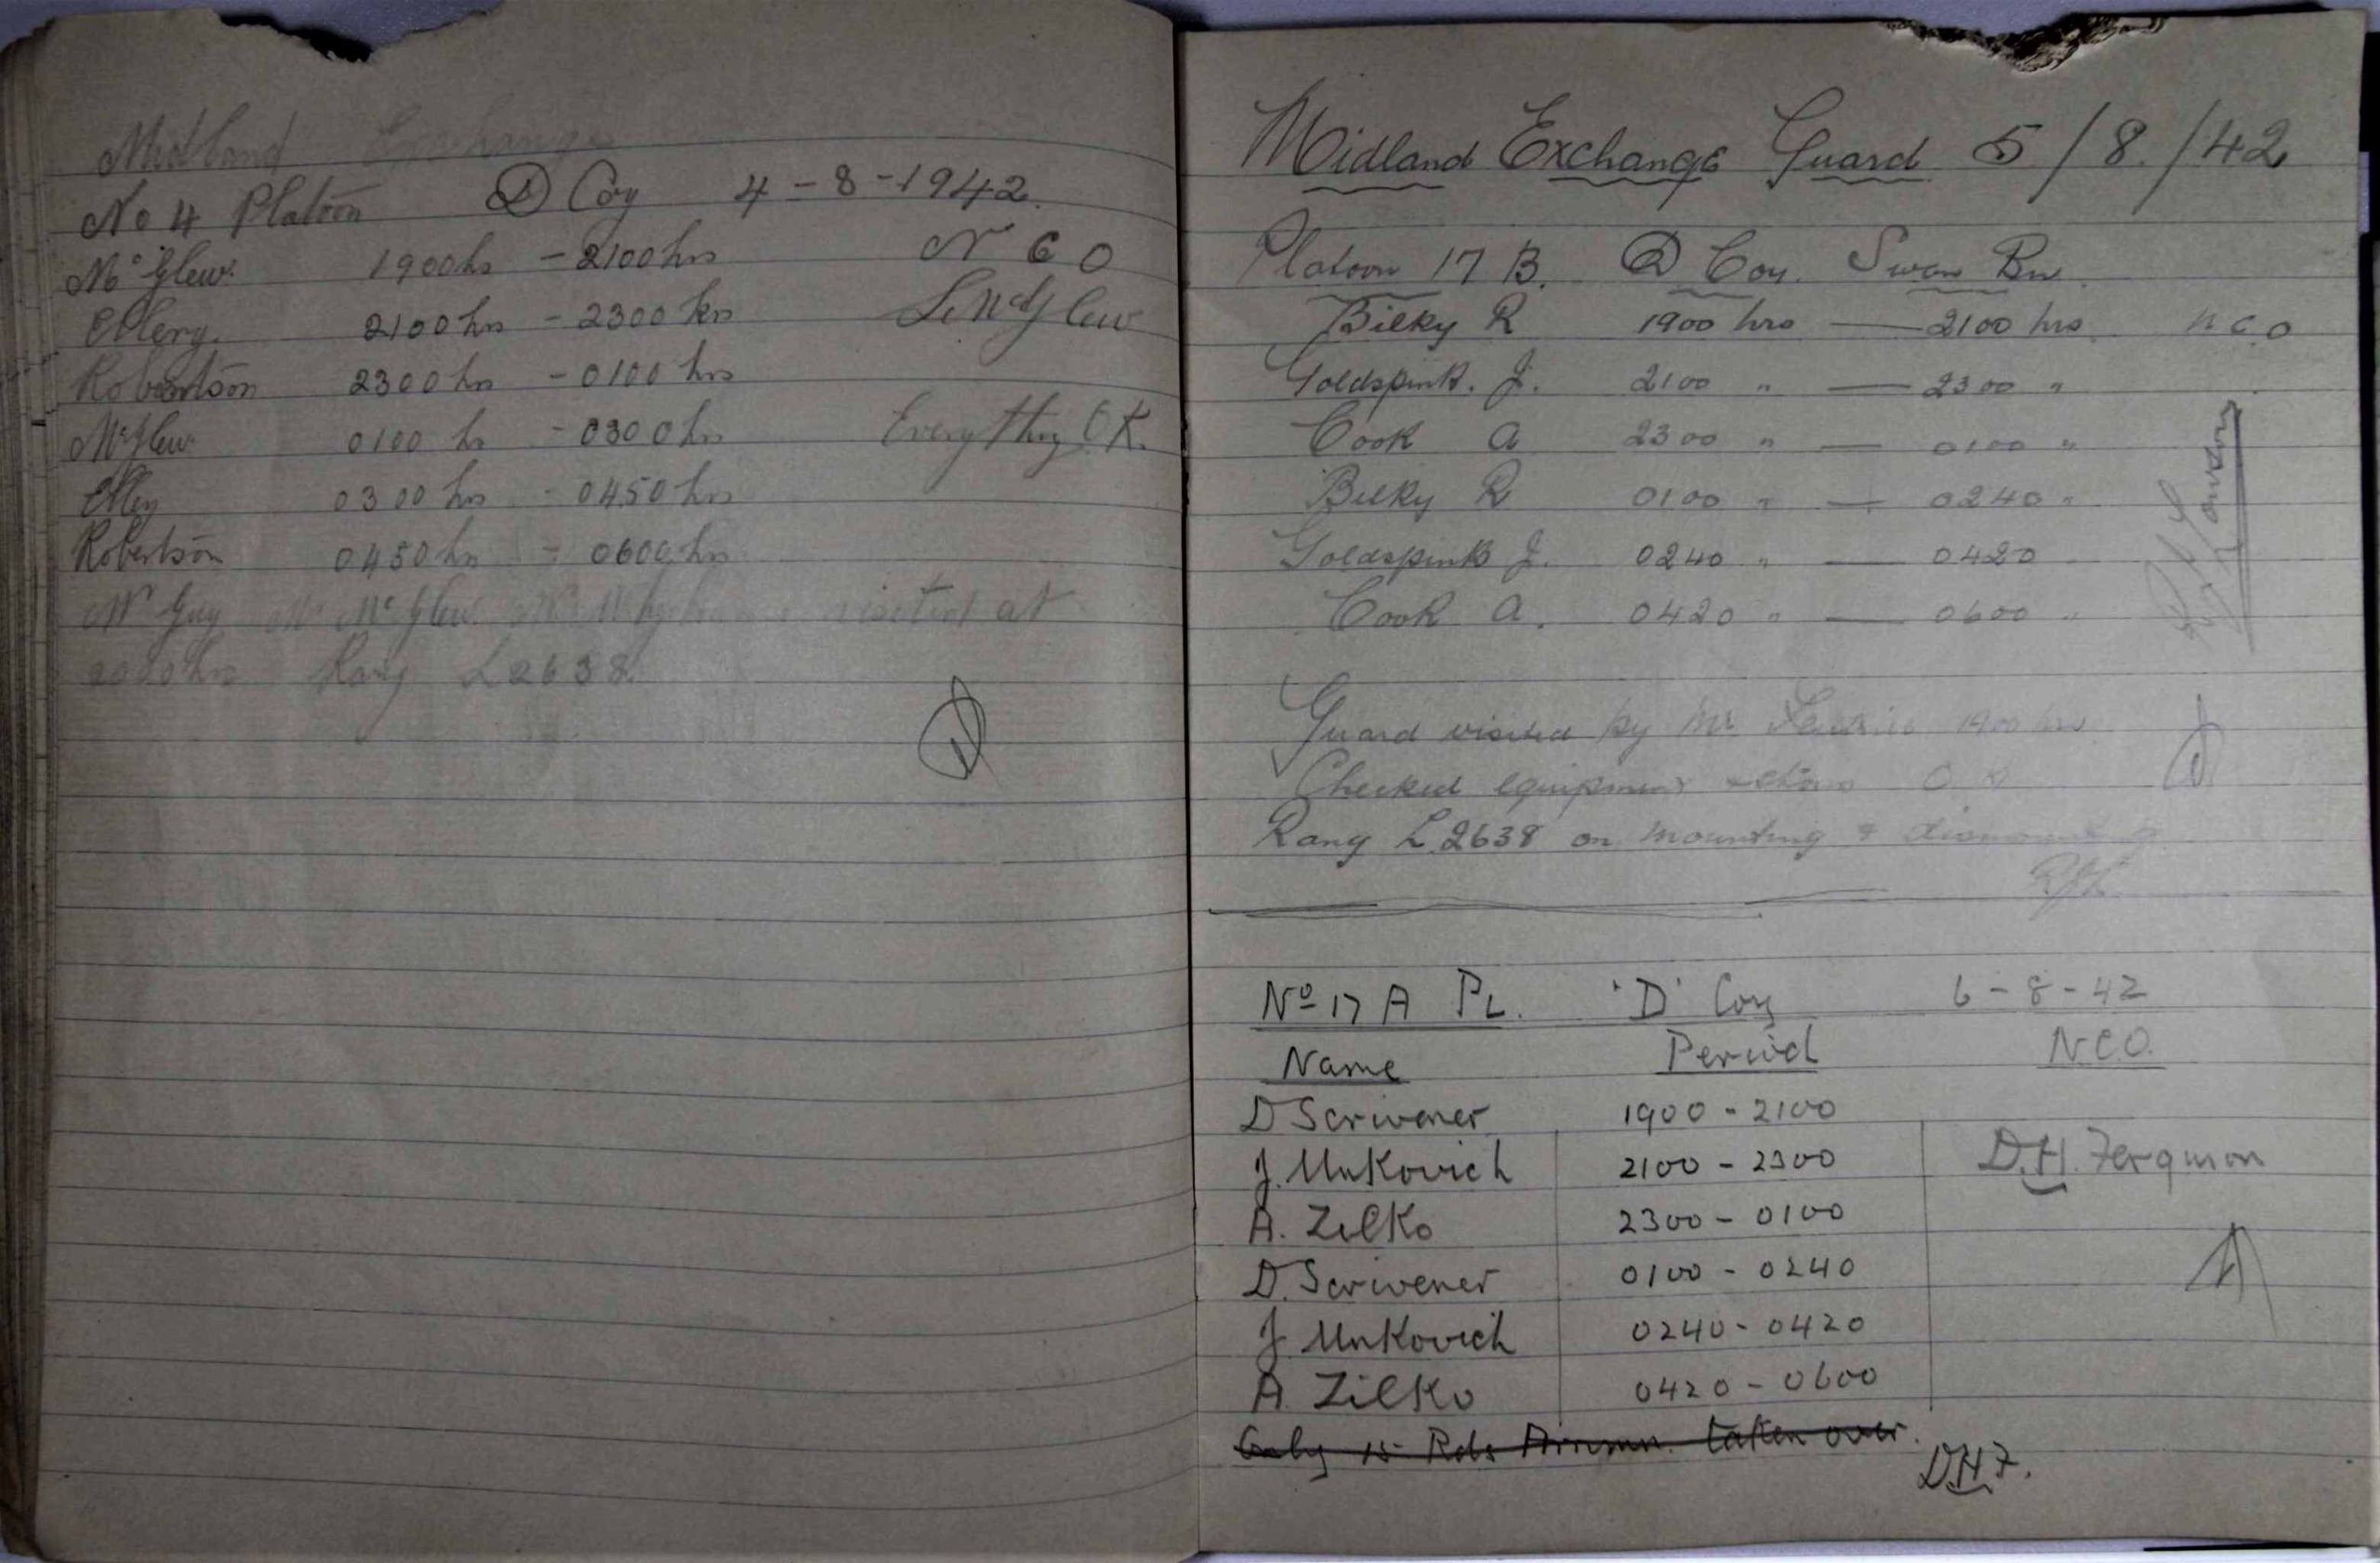 Midland Exchange
No 4 Platoon D Coy 4-8-1942.
McGlew. 1900hs - 2100hrs N C O
Ellery. 2100hrs - 2300hrs L. McGlew
Robertson 2300hrs - 0100hrs
McGlew 0100 hr - 0300hrs Everything O.K.
Ellery 0300hrs - 0450hrs
Robertson 0450hrs - 0600hrs
Mr Guy Mr McGlew visited at
hrs Rang L2638.
Midland Exchange Guard 5/8/42
Platoon 17 B. D Coy. Swan Bn.
Bilky R 1900 hrs — 2100 hrs N C O
Goldspink. J. 2100 " — 2300 "
Cook A 2300 " — 0100 "
Bilky R 0100 " — 0240 "
Goldspink J. 0240 " — 0420
Cook A. 0420 " — 0600 "
Guard visited by Mr 1900 hrs
Checked equipment O.K
Rang L2638 on mounting & dismounting
No 17 A PL. 'D' Coy 6-8-42
Name Period N.C.O.
D Scrivener 1900 - 2100
J. Unkovich 2100 - 2300 D.H. Ferguson
A. Zilko 2300 - 0100
D. Scrivener 0100 - 0240
J Unkovich 0240 - 0420
A. Zilko 0420 - 0600
Only 15 Rds Ammn. taken over.
D.H.F.